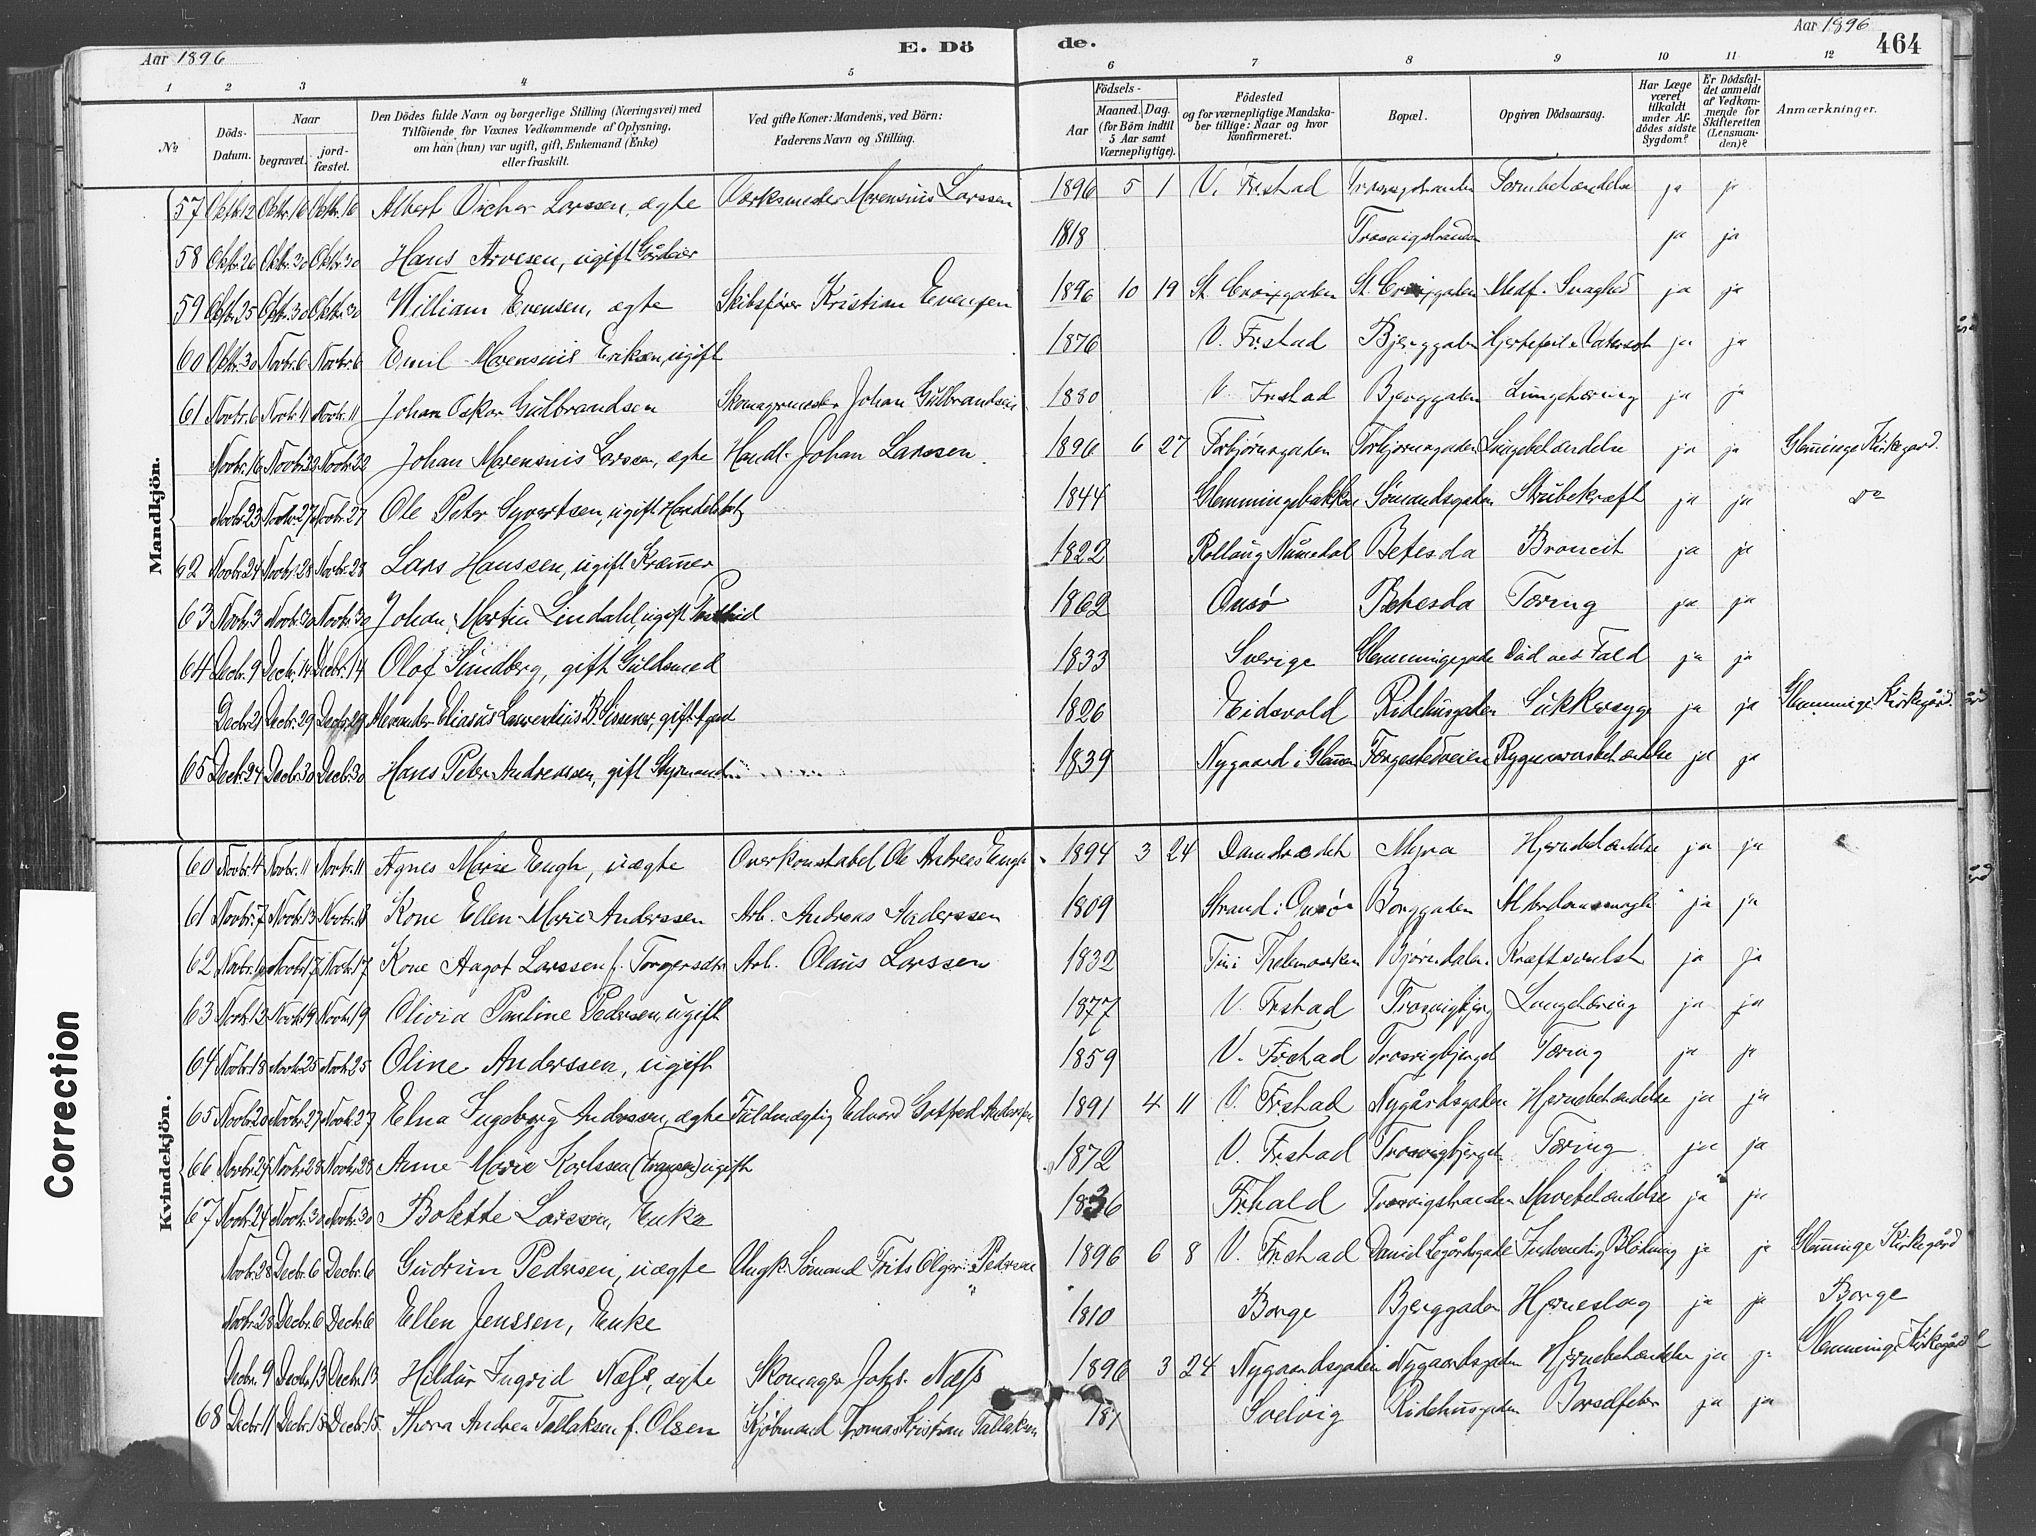 Aar 1896
E. Dö
de.
Aar 1896
464
1 2 3 4 5 6 7 8 9 10 11 12
No
Döds-Datum.
Naar
begravet.
jord-fæstet.
Den Dödes fulde Navn og borgerlige Stilling (Næringsvei) med
Tilföiende for Voxnes Vedkommende af Oplysning,
om han (hun) var ugift, gift, Enkemand (Enke)
eller fraskilt.
Ved gifte Koner: Mandens, ved Börn:
Faderens Navn og Stilling.
Födsels-
Aar
Maaned. Dag.
(for Börn indtil
5 Aar samt
Værnepligtige).
Födested
og for værnepligtige Mandska-
ber tillige: Naar og hvor
konfirmeret.
Bopæl.
Opgiven Dödsaarsag.
Har Læge
været
tilkaldt
under Af-
dödes sidste
Sygdom?
Er Dödsfal-
det anmeldt
af Vedkom-
mende for
Skifteretten
(Lensman-
den)?
Anmærkninger.
Mandkjön.
57 Oktbr.12 Oktbr.16 Oktbr.16 Albert Victor Larssen, ægte Værksmester Marensius Larssen 1896 5 1 V. Frstad Trosvigstranden Tarmbetændelse ja ja
58 Oktbr.26 Oktbr.30 Oktbr.30 Hans Arvesen, ugift 1818 Trosvigstranden ja ja
59 Oktbr.25 Oktbr.30 Oktbr.30 William Evensen, ægte Skibsfører Kristian Evensen 1896 10 19 St. Croixgaden St. Croixgaden Medf. Svaghed ja ja
60 Oktbr.30 Novbr.6 Novbr.6 Emil Marensius Eriksen, ugift 1876 V. Frstad Bjerggaden Hjertefeil Vatersot ja ja
61 Novbr.6 Novbr.11 Novbr.11 Johan Oskar Gudbrandsen Skomagermester Johan Gudbrandsen 1880 V. Frstad Bjerggaden Lungetæring ja ja
Novbr.16 Novbr.22 Novbr.22 Johan Marensius Larsen, ægte Handl. Johan Larssen. 1896 6 27 Torbjørnsgaden Torbjørnsgaden Lungebetændelse ja ja Glemminge Kirkegård.
Novbr.23 Novbr.27 Novbr.27 Ole Peter Syvertsen, ugift 1844 Glemmingebakken Sømandsgaden Strubekræft ja ja do
62 Novbr.24 Novbr.28 Novbr.28 Lars Hanssen, ugift Kræmmer 1822 Rollaug Numedal Betesda Broncit ja ja
63 Novbr.3 Novbr.30 Novbr.30 Johan Martin Lindahl, ugift 1862 Onsø Bethesda Tæring ja ja
64 Decbr.9 Decbr.14 Decbr.14 Olof Sundberg, gift Guldsmed 1833 Sverige Glemmingegade Død ved Fald ja ja
Decbr.21 Decbr.29 Decbr.29 Alexander Eliasus Laurentius B. Sissener, gift Agent 1826 Eidsvold Ridehusgaden Sukkersyge ja ja Glemminge Kirkegård.
65 Decbr.24 Decbr.30 Decbr.30 Hans Peter Andreassen, gift Styrmand 1839 Nygaard i Glemm Færgestedveien Rygmarvsbetændelse ja ja
Kvindekjön.
60 Novbr.4 Novbr.11 Novbr.11 Agnes Marie Engh, uægte Overkonstabel Ole Andreas Engh 1894 3 24 Damdrædet Myra Hjernebetændelse ja ja
61 Novbr.7 Novbr.13 Novbr.13 Kone Ellen Marie Anderssen Arb. Andreas Anderssen 1809 Strand i Onsø Borggaden Alderdomssvagh. ja ja
62 Novbr.10 Novbr.17 Novbr.17 Kone Aagot Larssen f. Torgersdtr. Arb. Olaus Larssen 1832 Tin i Thelemarken Bjørndalen Kræftsvulst ja ja
63 Novbr.12 Novbr.19 Novbr.19 Olivia Pauline Pedersen, ugift 1877 V. Frstad Trosvigbjerg Lungetæring ja ja
64 Novbr.18 Novbr.25 Novbr.25 Oline Anderssen, ugift 1859 V. Frstad Trosvigbjerget Tæring ja ja
65 Novbr.20 Novbr.27 Novbr.27 Elna Ingeborg Anderssen, ægte Fuldmægtig Edvard Gotfred Anderssen 1891 4 11 V. Frstad Nygårdsgaden Hjernebetændelse ja ja
66 Novbr.24 Novbr.28 Novbr.28 Anne Marie Karlssen ugift 1872 V. Frstad Trosvigbjerget Tæring ja ja
67 Novbr.24 Novbr.30 Novbr.30 Bolette Larssen, Enke 1836 Frhald Trosvigstranden Mavebetændelse ja ja
Novbr.28 Decbr.6 Decbr.6 Gudrun Pedersen, uægte Ungk. Sømand Frits Olger Pedersen 1896 6 8 V. Frstad Daniel Legårdsgade Indvendig Blødning ja ja Glemminge Kirkegård
Novbr.28 Decbr.6 Decbr.6 Ellen Jenssen, Enke 1810 Borge Bjerggaden Hjerneslag ja ja Borge
Decbr.9 Decbr.13 Decbr.13 Hildur Ingrid Næss, ægte Skomager Johs. Næss 1896 3 24 Nygaardsgaden Nygaardsgaden Hjernebetændelse ja ja Glemminge Kirkegård
68 Decbr.11 Decbr.15 Decbr.15. Thora Andrea Tallaksen f. Olsen Kjøbmand Thomas Kristian Tallaksen 187 Svelvig Ridehusgaden Barselfeber ja ja
Correction